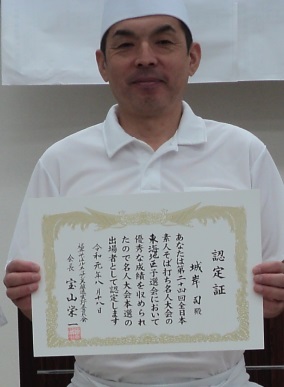 認定証
城岸 殿
あなたは第二十四回全日本
素人そば打ち名人大会の
東海地区予選会において
優秀な成績を収められ
たので名人大会本選の
出場者として認定します
令和元年八月十八日
会長 宝山栄一